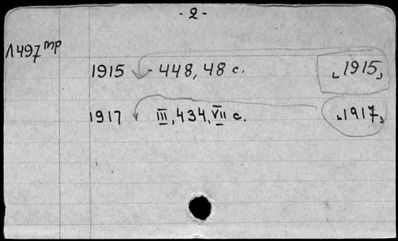 - 2 -
1915 - 448, 48 с. „1915„
1917 III, 434, VII с. „1917„